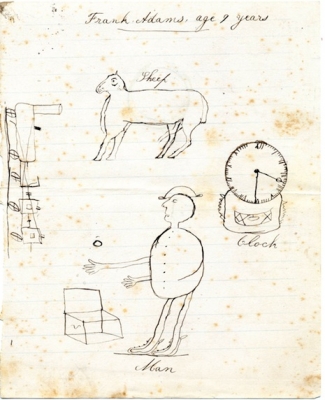 Frank Adams age 9 years
Sheep
Clock
Man